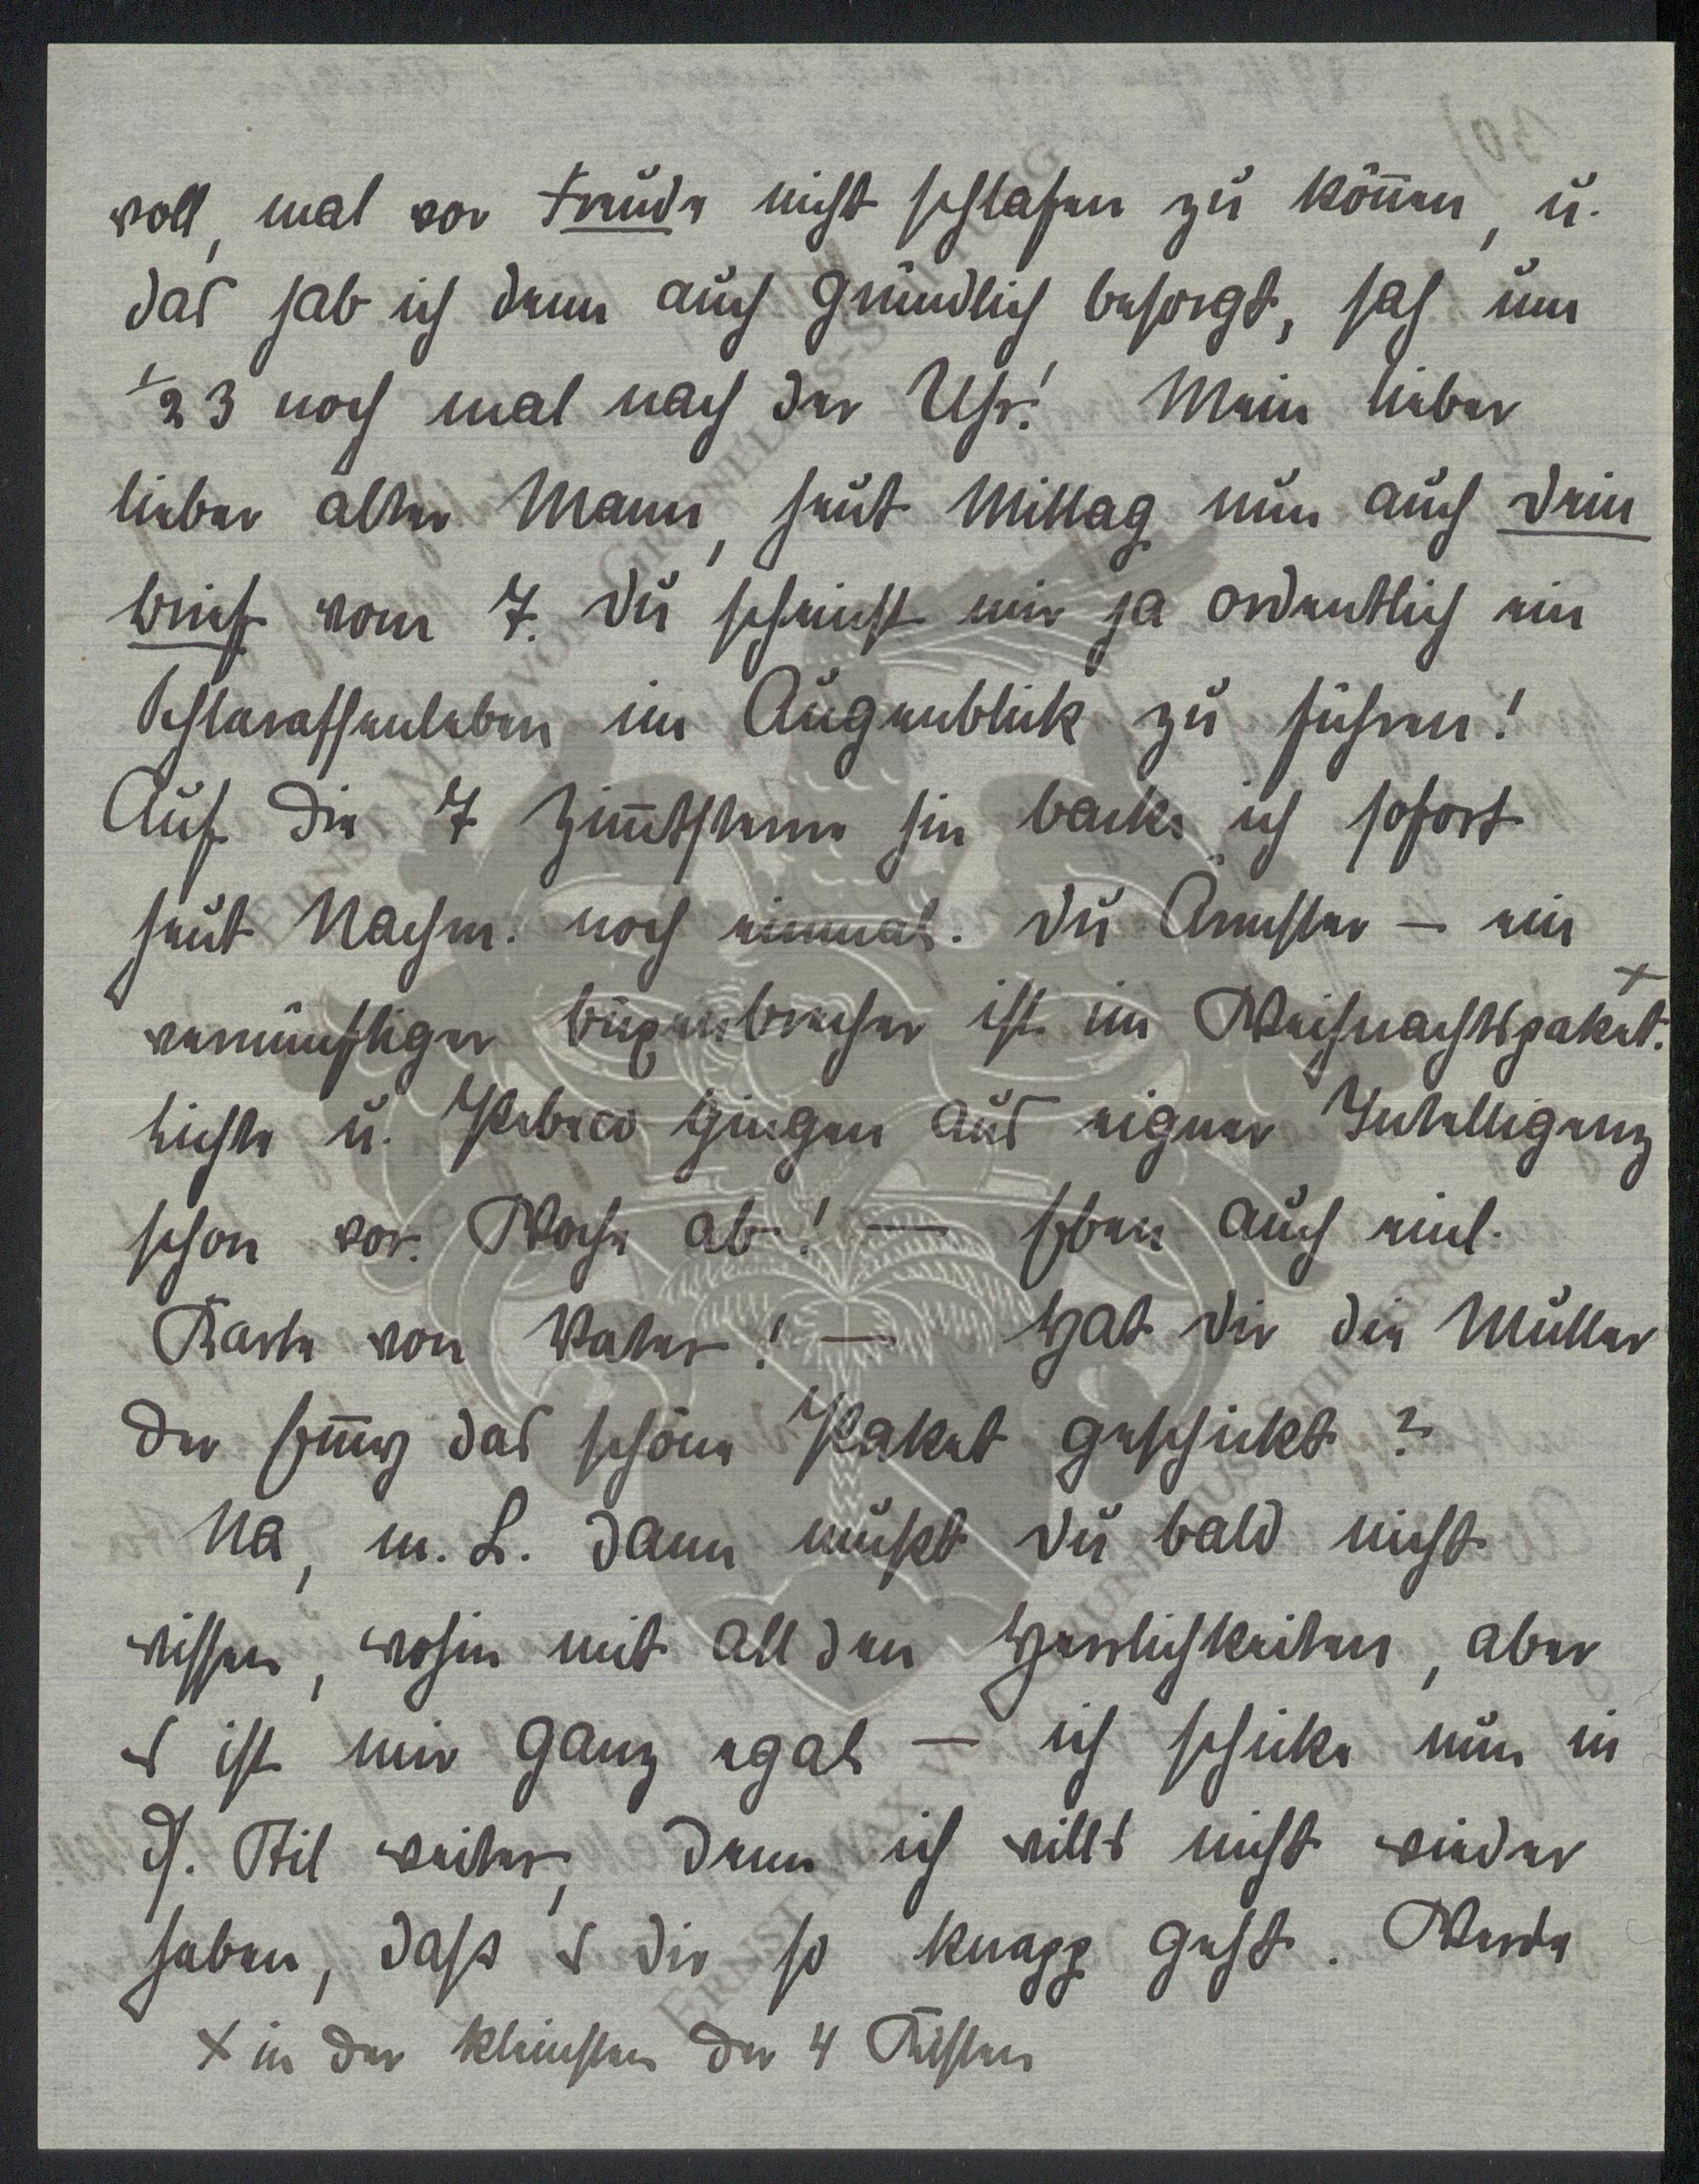 voll, mal vor Freude nicht schlafen zu können, u.
das hab ich denn auch gründlich besorgt, sah um
1/2 3 noch mal nach der Uhr! Mein lieber
lieber alter Mann, heut Mittag nun auch Dein
Brief vom 7. Du scheinst mir ja ordentlich ein
Schlaraffenleben im Augenblick zu führen!
Auf die 7 Zimtsterne hin backe ich sofort
heut Nachm. noch einmal. Du Ärmster – ein
vernünftiger Büxenbrecher ist im Weihnachtspaket. x
Lichte u. Pebeco gingen aus eigner Intelligenz
schon vor. Woche ab! – Eben auch eine
Karte von Vater! – Hat Dir die Müller
der das schöne Paket geschickt?
Na, m. L. dann mußt Du bald nicht
wissen, wohin mit all den Herrlichkeiten, aber
s ist mir ganz egal – ich schicke nun in
d. Stil weiter, denn ich wills nicht wieder
haben, dass s Dir so knapp geht. Werde
x in der kleinsten der 4 Kisten
ERNST MAX VON GRUNELIUS-STIFTUNG
ERNST MAX VON GRUNELIUS-STIFTUNG